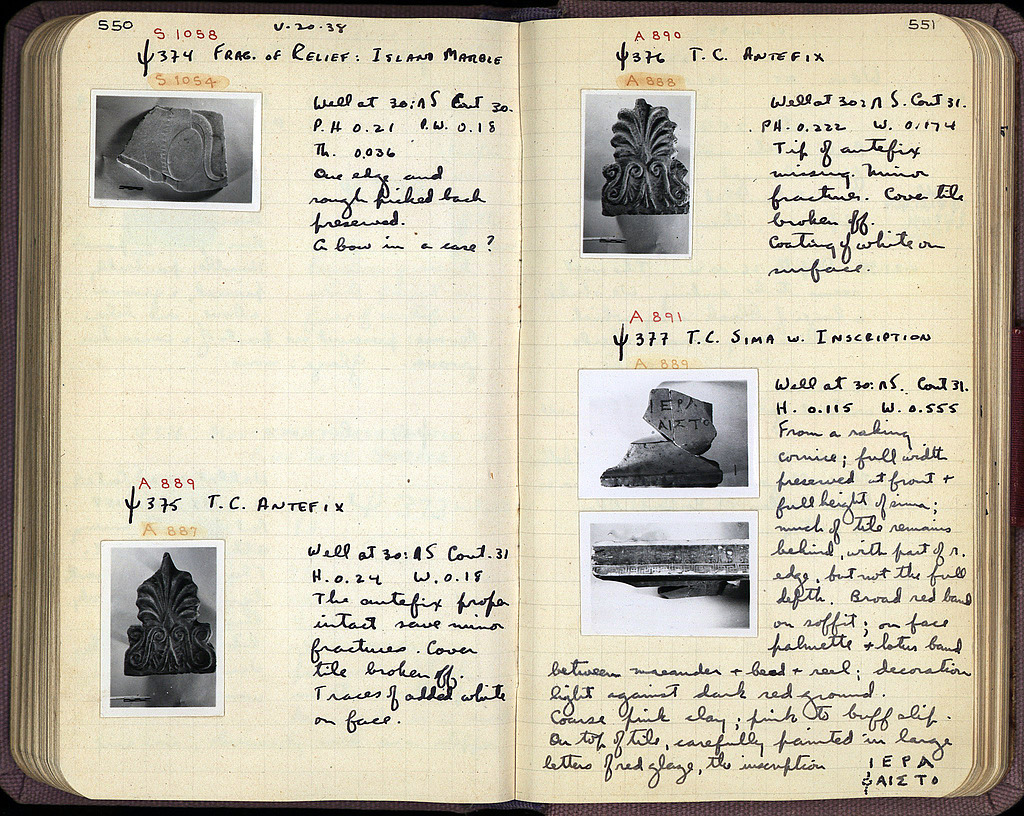 550
V-20-38
S 1058
ψ374 FRAG. OF RELIEF: ISLAND MARBLE
S 1054
Well at 30:ΛS Cont 30.
P.H 0.21 P.W. 0.18
Th. 0.036
One edge and
rough picked back
preserved.
A bow in a case?
A 889
ψ375 T.C. ANTEFIX
A 887
Well at 30:ΛS Cont. 31
H. 0.24 W. 0.18
The antefix proper
intact save minor
fractures. Cover
tile broken off.
Traces of added white
on face.
551
A 890
ψ376 T.C. ANTEFIX
A 888
Well at 30:ΛS. Cont 31.
PH. 0.222 W. 0.174
Tip of antefix
missing. Minor
fractures. Cover tile
broken off.
Coating of white on
surface.
A 891
ψ377 T.C. SIMA W. INSCRIPTION
A 889
ΙΕΡΑ
ΑΙΣΤΟ
Well at 30:ΛS. Cont 31.
H. 0.115 W. 0.555
From a raking
cornice; full width
preserved at front +
full height of sima;
much of tile remains
behind, with part of r.
edge, but not the full
depth. Broad red band
on soffit; on face
palmette + lotus band
between maeander + bead + reel; decoration
light against dark red ground.
Coarse pink clay; pink to buff slip.
On top of tile, carefully painted in large
letters of red glaze, the inscription ΙΕΡΑ
ΑΙΣΤΟ